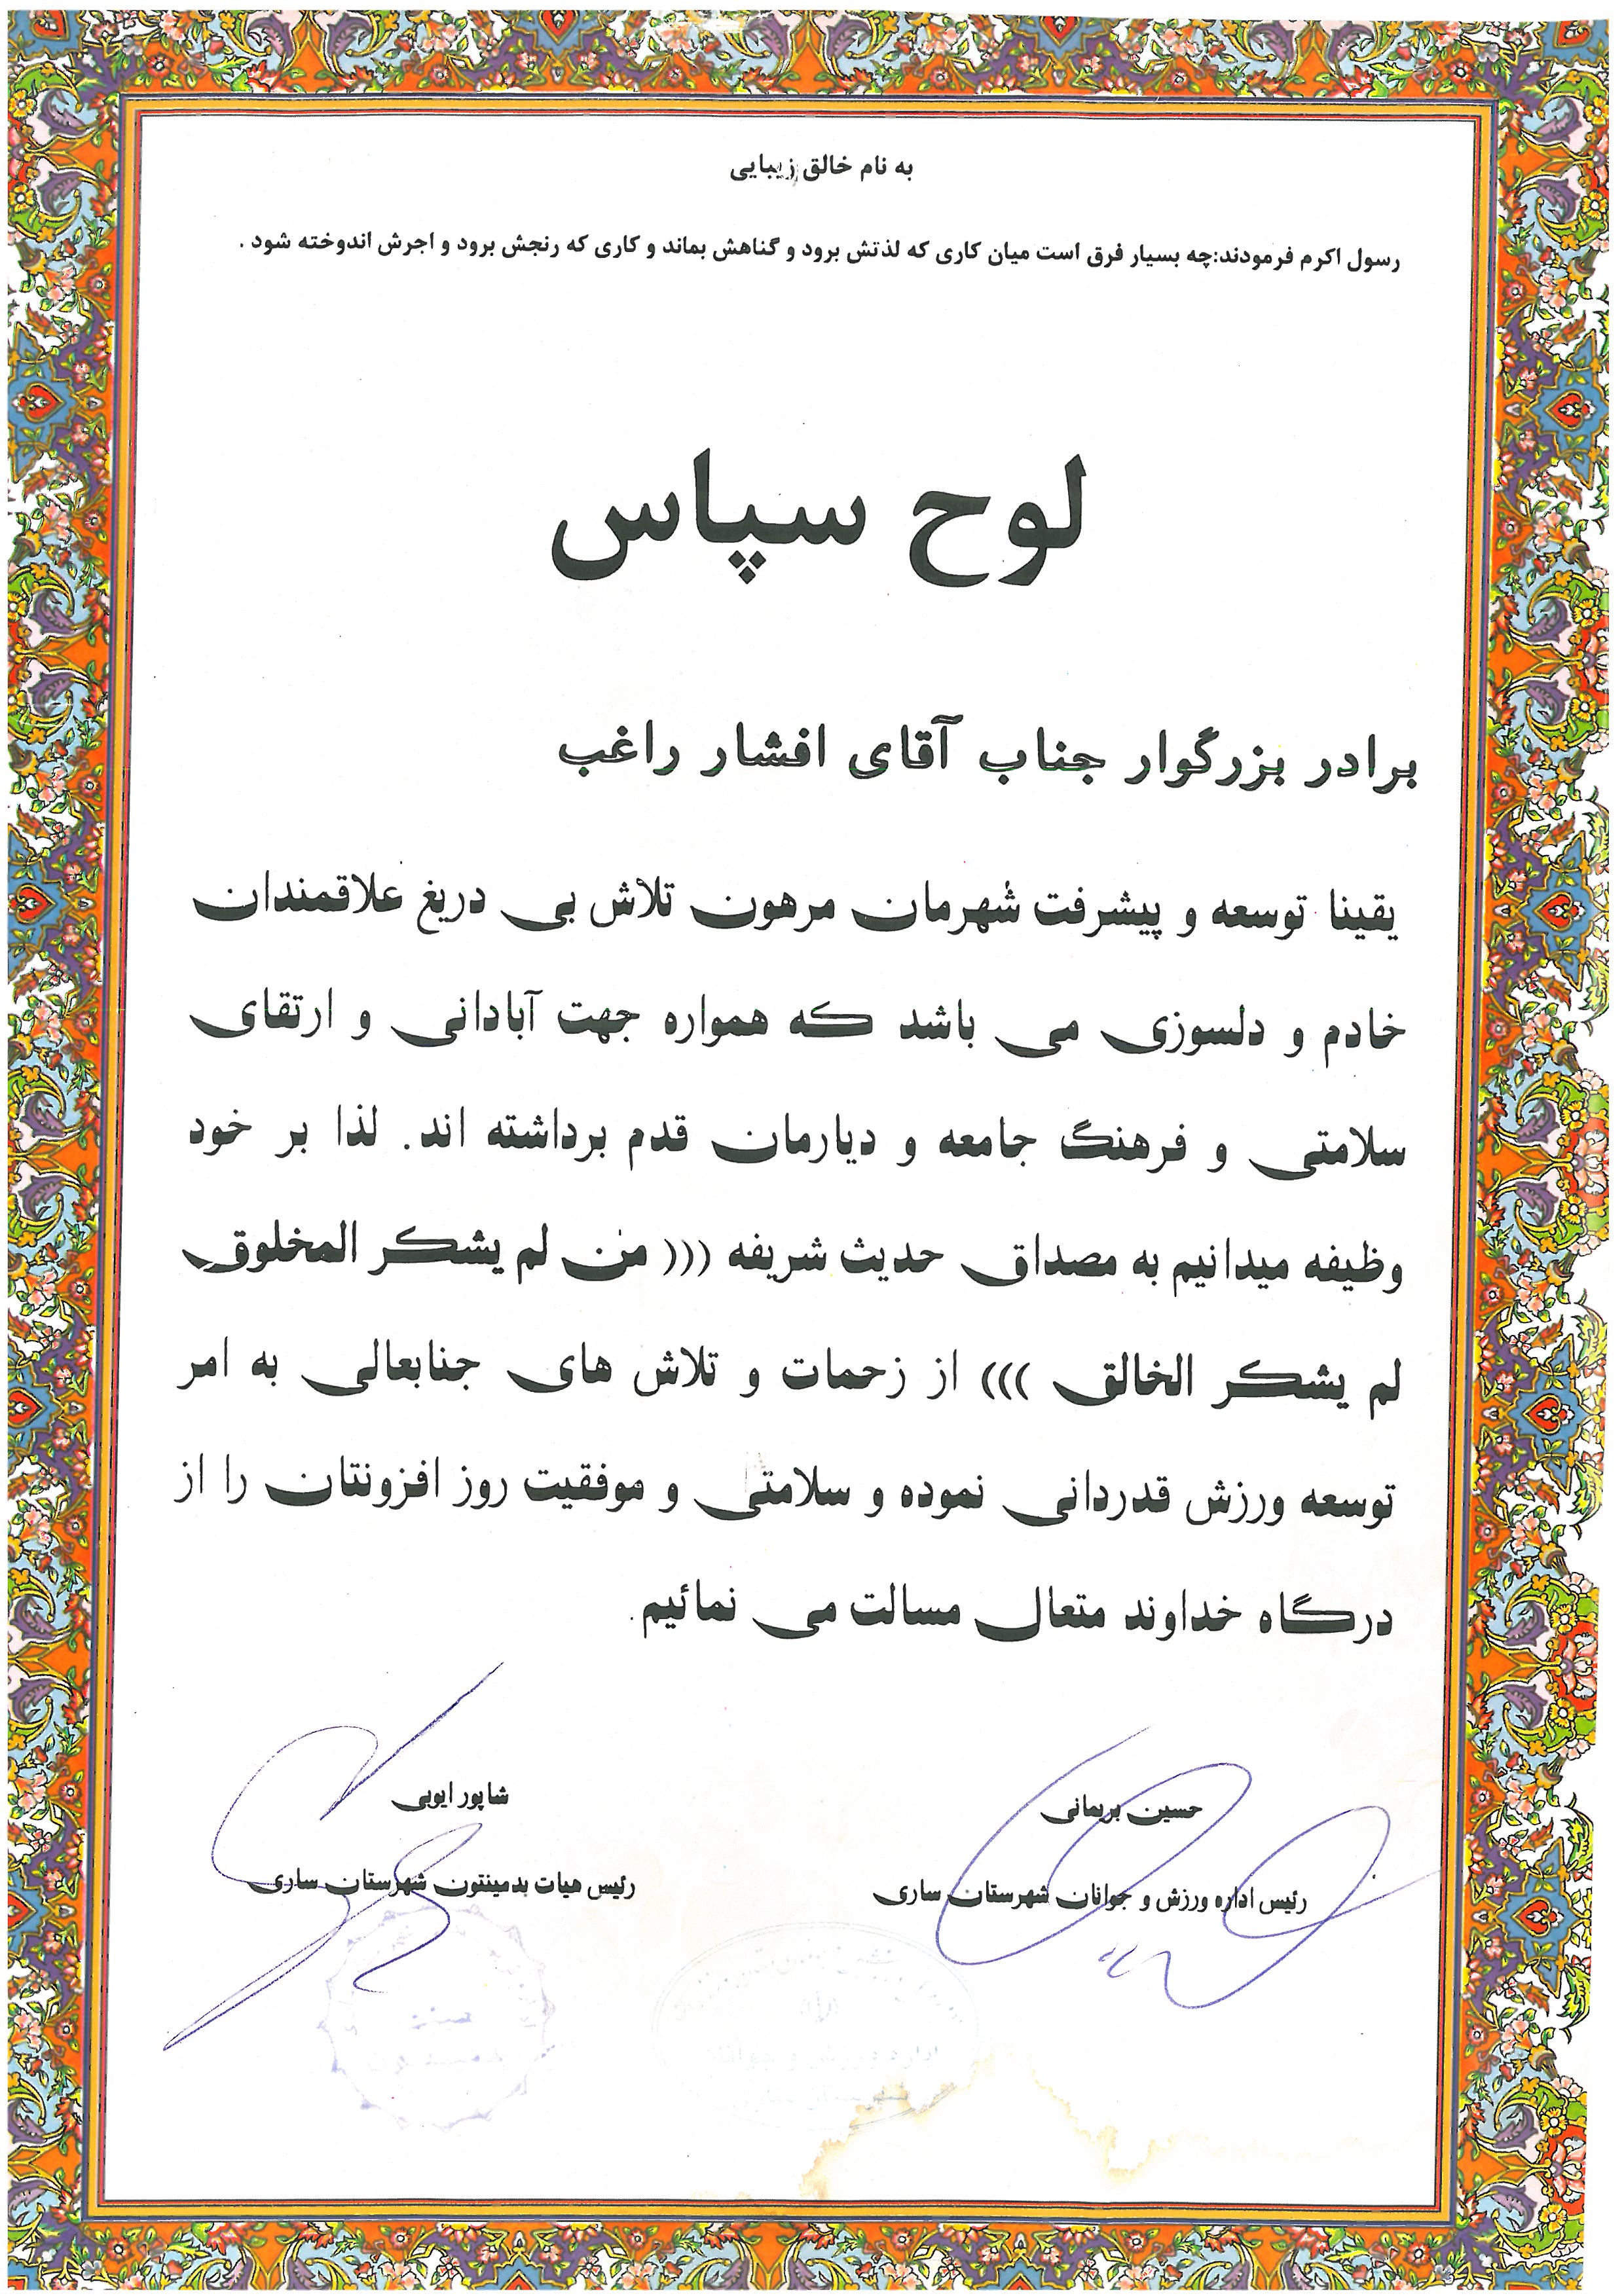 به نام خالق زیبایی
رسول اکرم فرمودند:چه بسیار فرق است میان کاری که لذتش برود و گناهش بماند و کاری که رنجش برود و اجرش اندوخته شود .
لوح سپاس
برادر بزرگوار جناب آقای افشار راغب
یقینا توسعه و پیشرفت شهرمان مرهون تلاش بی دریغ علاقمندان
خادم و دلسوزی می باشد که همواره جهت آبادانی و ارتقای
سلامتی و فرهنگ جامعه و دیارمان قدم برداشته اند. لذا بر خود
وظیفه میدانیم به مصداق حدیث شریفه ((( من لم یشکر المخلوق
لم یشکر الخالق ))) از زحمات و تلاش های جنابعالی به امر
توسعه ورزش قدردانی نموده و سلامتی و موفقیت روز افزونتان را از
درگاه خداوند متعال مسالت می نمائیم.
حسین بریمانی
رئیس اداره ورزش و جوانان شهرستان ساری
شاپور ایوبی
رئیس هیات بدمینتون شهرستان ساری